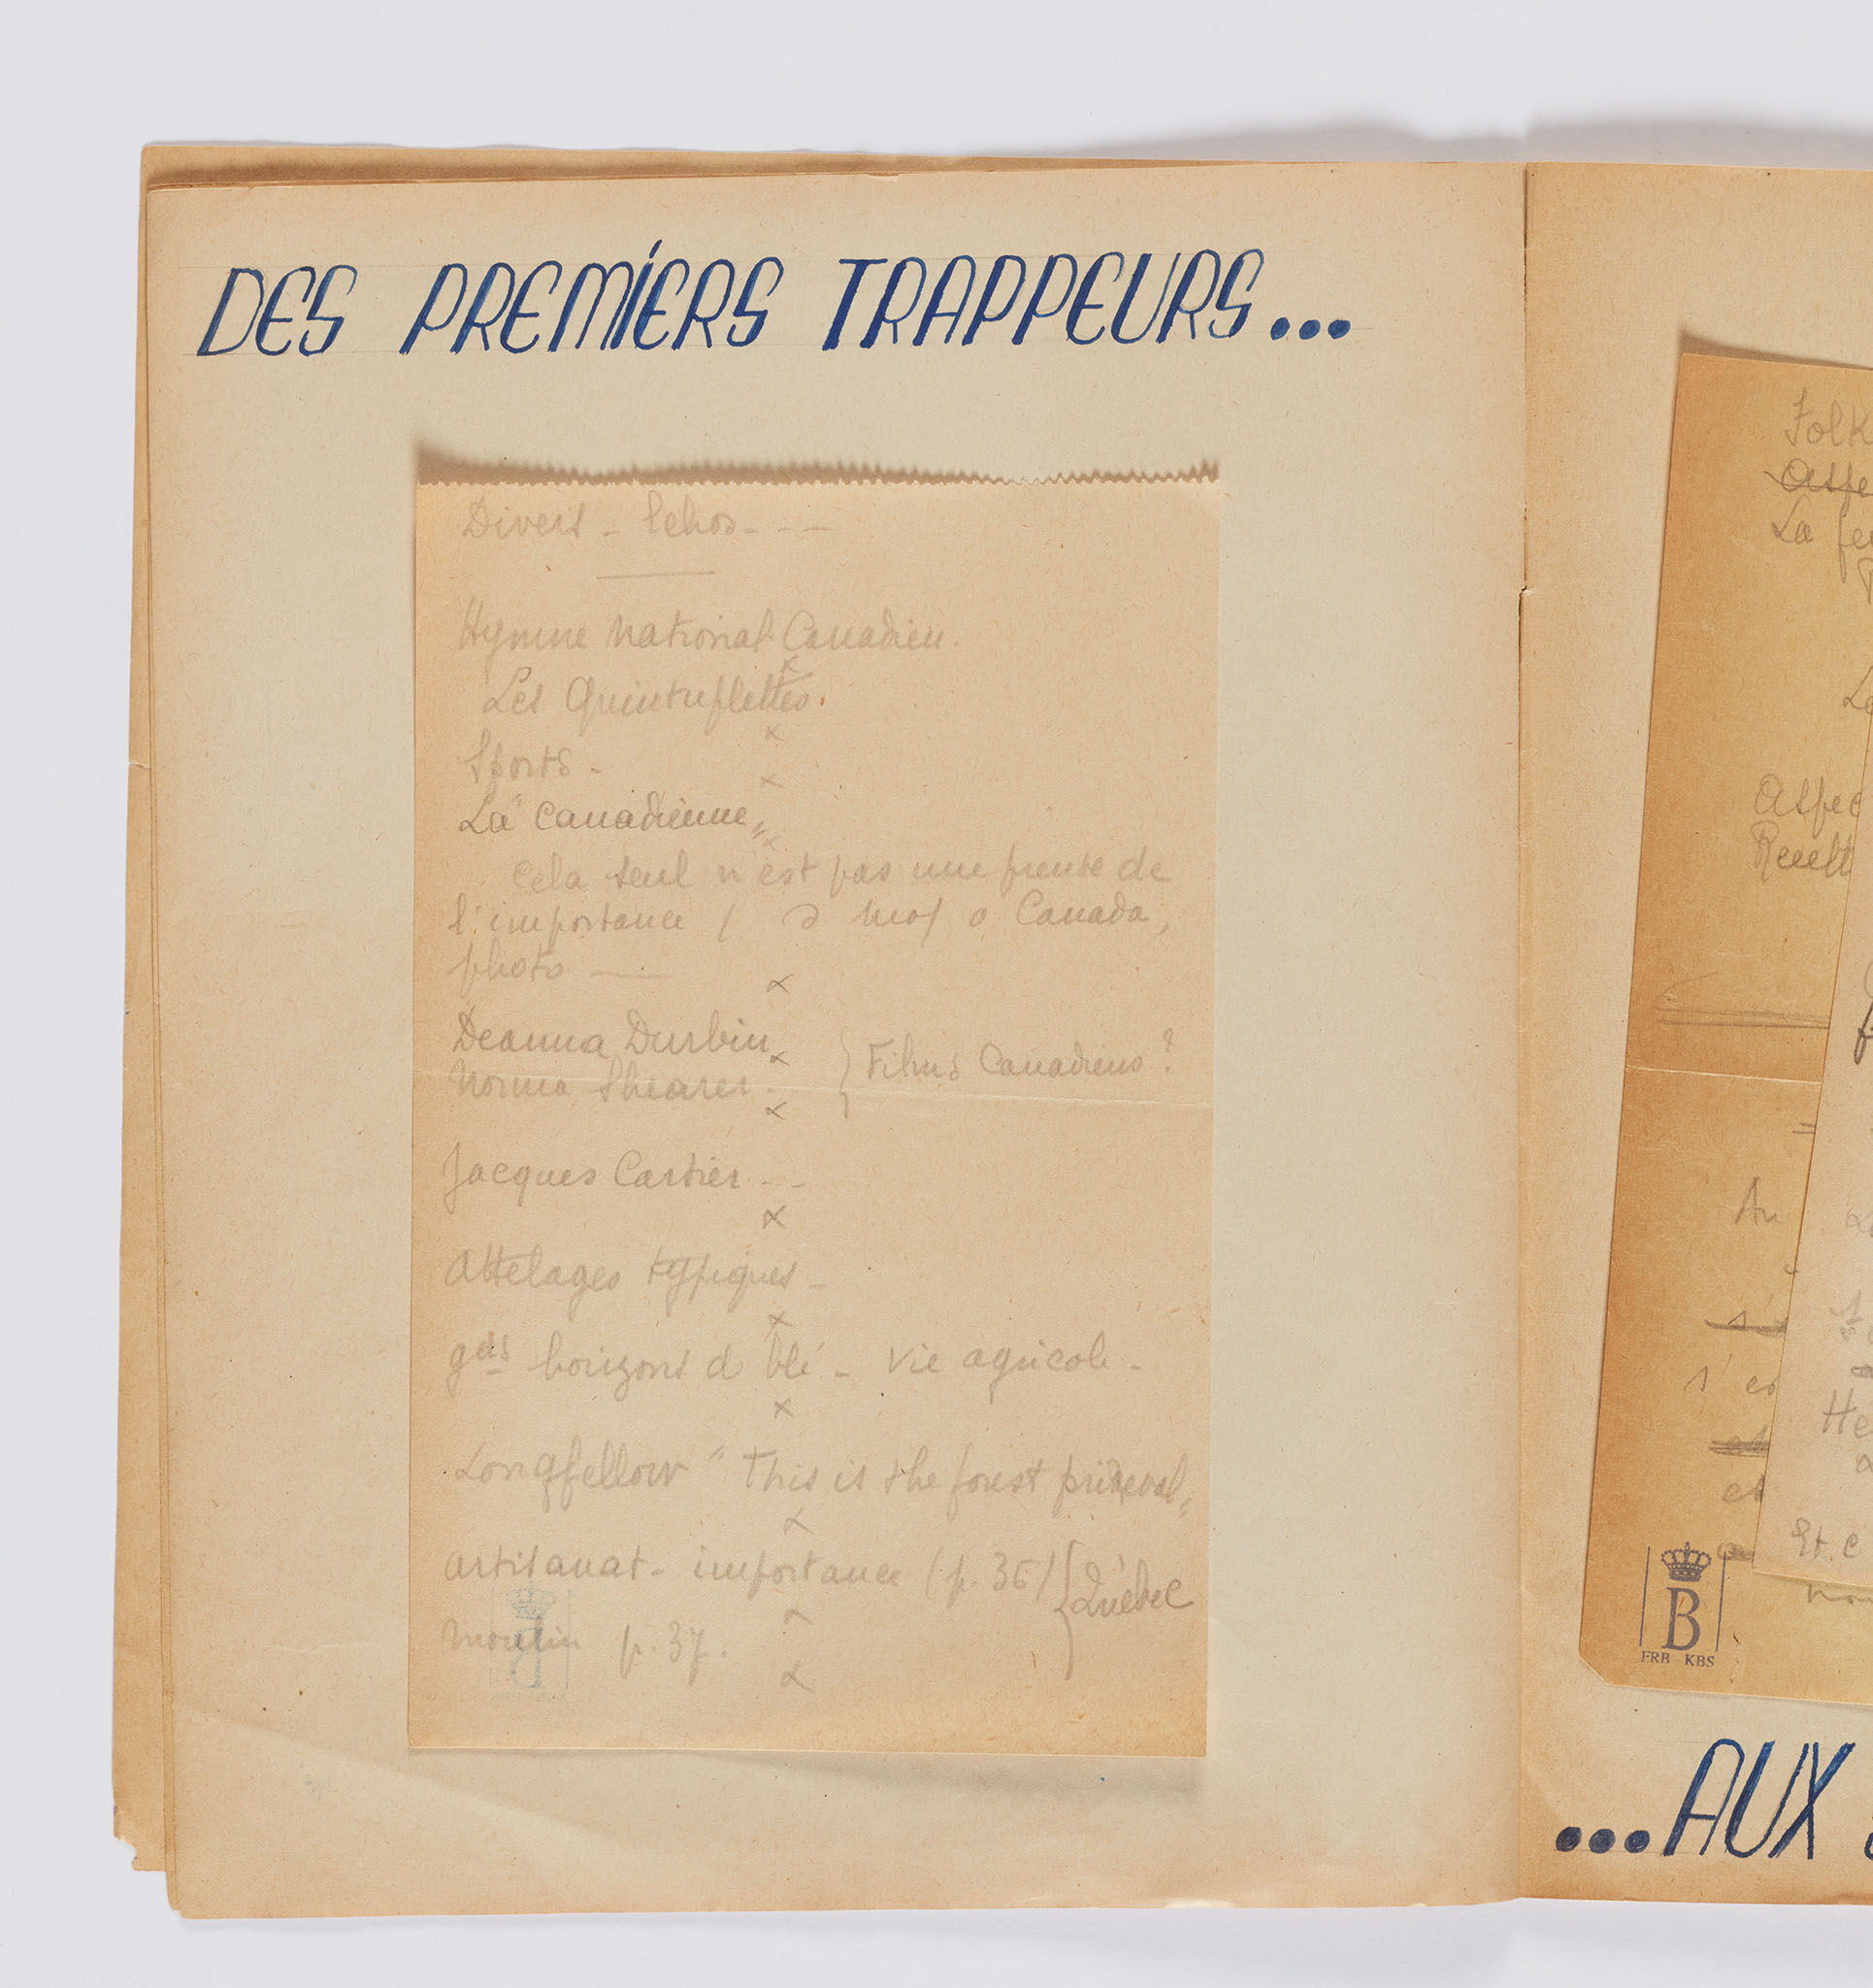 DES PREMIERS TRAPPEURS...
Divers - Echos - - -
Hymne National Canadien.
x
Les Quintuplettes.
x
Sports -
x
La "Canadienne"
x
Cela seul n'est pas une preuve de
l'importance ( mo) Canada,
photo —
x
Deanna Durbin
x
Norma Shearer -
} Films Canadiens ?
x
Jacques Cartier - - -
x
Attelages typiques -
x
gds horizons d blé - Vie agricole -
x
Longfellow "This is the forest primeval"
x
artisanat - importance (p. 36)
x
Moulin p. 37.
} Québec
x
Folk
Aspe
La fé
Aspec
Récolt
Au
s'
s'en
et
He
Et. c
B
FRB KBS
...AUX